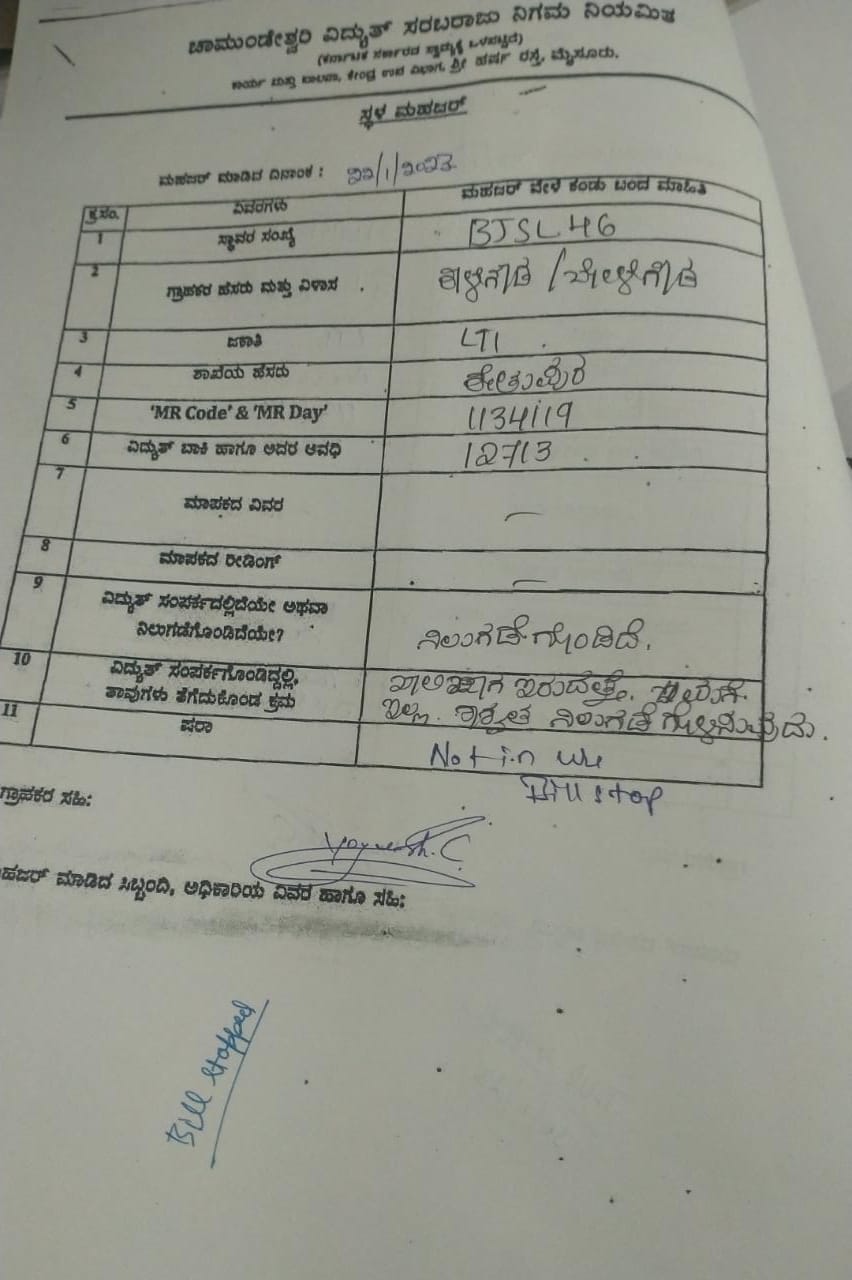 ಚಾಮುಂಡೇಶ್ವರಿ ವಿದ್ಯುತ್ ಸರಬರಾಜು ನಿಗಮ ನಿಯಮಿತ
(ಕರ್ನಾಟಕ ಸರ್ಕಾರದ ಸ್ವಾಮ್ಯಕ್ಕೆ ಒಳಪಟ್ಟಿದೆ)
ಕಾರ್ಯ ಮತ್ತು ಪಾಲನಾ, ಕೇಂದ್ರ ಉಪ ವಿಭಾಗ, ಶ್ರೀ ಹರ್ಷ ರಸ್ತೆ, ಮೈಸೂರು.
ಸ್ಥಳ ಮಹಜರ್
ಮಹಜರ್ ಮಾಡಿದ ದಿನಾಂಕ : 22/1/2023
ಕ್ರ.ಸಂ. ವಿವರಗಳು ಮಹಜರ್ ವೇಳೆ ಕಂಡು ಬಂದ ಮಾಹಿತಿ
1 ಸ್ಥಾವರ ಸಂಖ್ಯೆ BJSL46
2 ಗ್ರಾಹಕರ ಹೆಸರು ಮತ್ತು ವಿಳಾಸ
3 ಜಕಾತಿ LT1
4 ಶಾಖೆಯ ಹೆಸರು
5 'MR Code' & 'MR Day' 1134119
6 ವಿದ್ಯುತ್ ಬಾಕಿ ಹಾಗೂ ಅದರ ಅವಧಿ 12713
7 ಮಾಪಕದ ವಿವರ –
8 ಮಾಪಕದ ರೀಡಿಂಗ್ –
9 ವಿದ್ಯುತ್ ಸಂಪರ್ಕದಲ್ಲಿದೆಯೇ ಅಥವಾ
ನಿಲುಗಡೆಗೊಂಡಿದೆಯೇ? ನಿಲುಗಡೆಗೊಂಡಿದೆ.
10 ವಿದ್ಯುತ್ ಸಂಪರ್ಕಗೊಂಡಿದ್ದಲ್ಲಿ, ಖಾಲಿ ಜಾಗ ಇರುತ್ತೆ.
ತಾವುಗಳು ತೆಗೆದುಕೊಂಡ ಕ್ರಮ ಇಲ್ಲ. ಶಾಶ್ವತ ನಿಲುಗಡೆ
11 ಷರಾ Not in use
Bill stop
ಗ್ರಾಹಕರ ಸಹಿ:
ಮಹಜರ್ ಮಾಡಿದ ಸಿಬ್ಬಂದಿ, ಅಧಿಕಾರಿಯ ವಿವರ ಹಾಗೂ ಸಹಿ:
Bill stopped